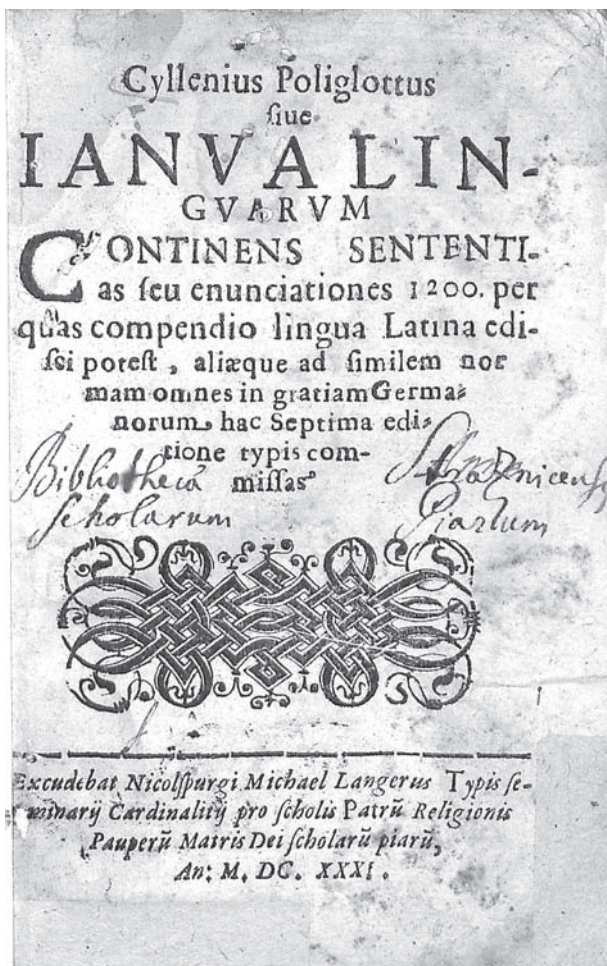 Cyllenius Poliglottus
ſiue
IANVA LIN-
GVARVM
CONTINENS SENTENTI-
as ſeu enunciationes 1200. per
quas compendio lingua Latina edi-
ſci poteſt, aliæque ad ſimilem nor
mam omnes in gratiam Germa-
norum, hac Septima edi-
tione typis com-
miſſas
Bibliotheca
ſcholarum Piarum
Excudebat Nicolſpurgi Michael Langerus Typis ſe-
minarij Cardinalitij pro ſcholis Patrũ Religionis
Pauperũ Matris Dei ſcholarũ piarũ,
An: M. DC. XXXI.